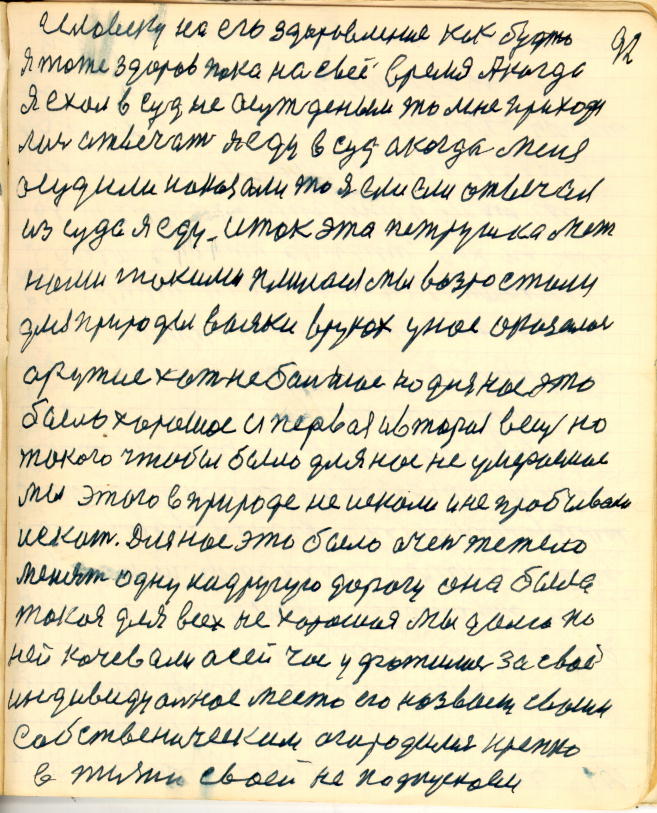 92
человеку на его здоровление как будто
я тоже здоров пока на своё время А когда
я ехол в суд не осужденым то мне приходи
лися отвечат я еду в суд а когда меня
осудили наказали то я если отвечал
из суда я еду. И ток эта петрушка меж
нами токими плилася мы возростали
для природы всяки в руках у нас оказалос
оружие хот не балшое но для нас это
было хорошое и первая и вторая вещ но
токого чтобы было для нас не умераемое
мы этого в природе не искали и не пробивали
искат. Для нас это было очен тежело
менят одну на другую дорогу она была
токоя для всех не хорошоя мы долго по
ней кочевали а сей час удержалис за своё
индивидуалное место его назвали своим
собственическим огородился крепко
в жизни своей не подпусковы